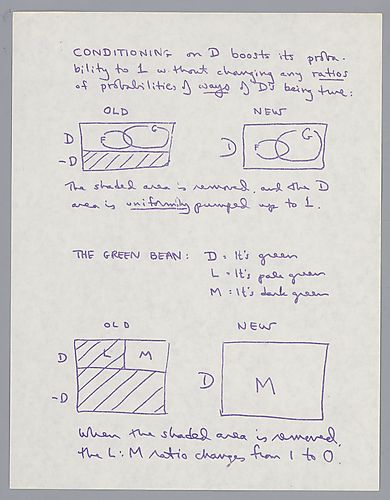 CONDITIONING on D boosts its proba-
bility to 1 without changing any ratios
of probabilities of ways of D's being true:
OLD NEW
D F G D F G
-D
The shaded area is removed, and the D
area is uniformly pumped up to 1.
THE GREEN BEAN: D = It's green
L = It's pale green
M = It's dark green
OLD NEW
D L M D M
-D
When the shaded area is removed,
the L:M ratio changes from 1 to 0.